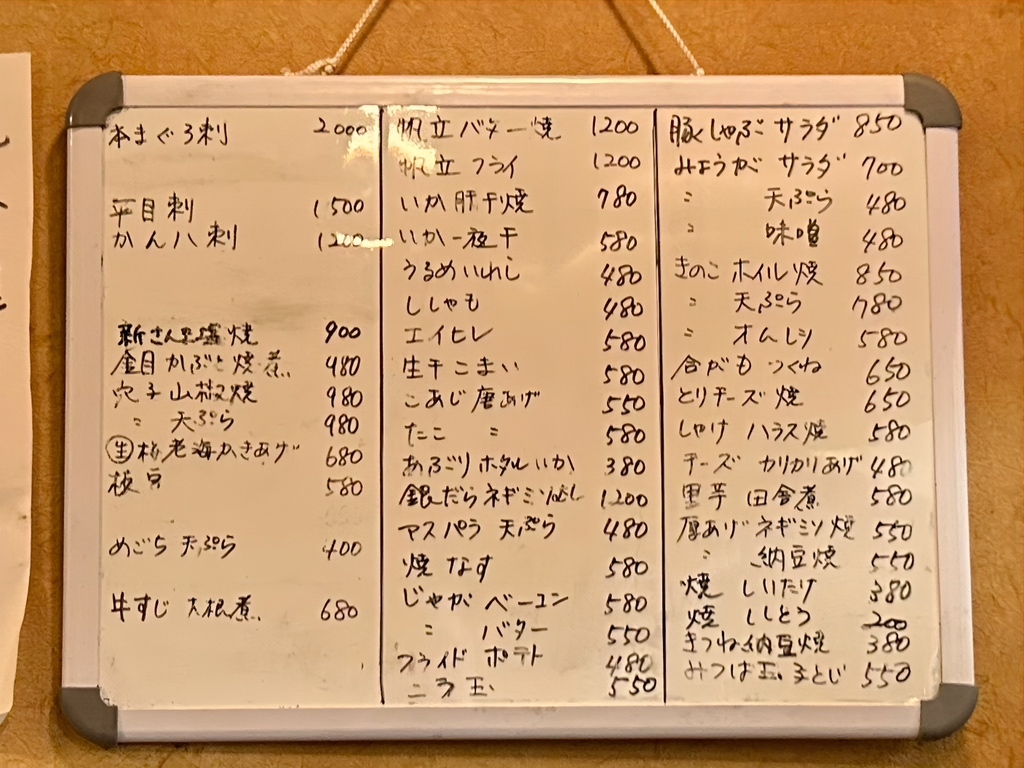 本まぐろ刺 2000
平目刺 1500
かん八刺 1200
新さんま塩焼 900
金目かぶと焼・煮 980
穴子山椒焼 980
〃 天ぷら 980
生桜老海かきあげ 680
枝豆 580
めごち 天ぷら 400
牛すじ 大根煮 680
帆立バター焼 1200
帆立フライ 1200
いか肝干焼 780
いか一夜干 580
うるめいわし 480
ししゃも 480
エイヒレ 580
生干こまい 580
こあじ唐あげ 550
たこ 〃 580
あぶり ホタルいか 380
銀だらネギミソ蒸し 1200
アスパラ 天ぷら 480
焼なす 580
じゃが ベーコン 580
〃 バター 550
フライド ポテト 480
ニラ玉 550
豚しゃぶ サラダ 850
みょうが サラダ 700
〃 天ぷら 480
〃 味噌 480
きのこ ホイル焼 850
〃 天ぷら 780
〃 オムレツ 580
合がも つくね 650
とりチーズ焼 650
しゃけ ハラス焼 580
チーズ カリカリあげ 480
里芋 田舎煮 580
厚あげ ネギミソ焼 550
〃 納豆焼 550
焼 しいたけ 380
焼 ししとう 200
きつね納豆焼 380
みつば玉子とじ 550